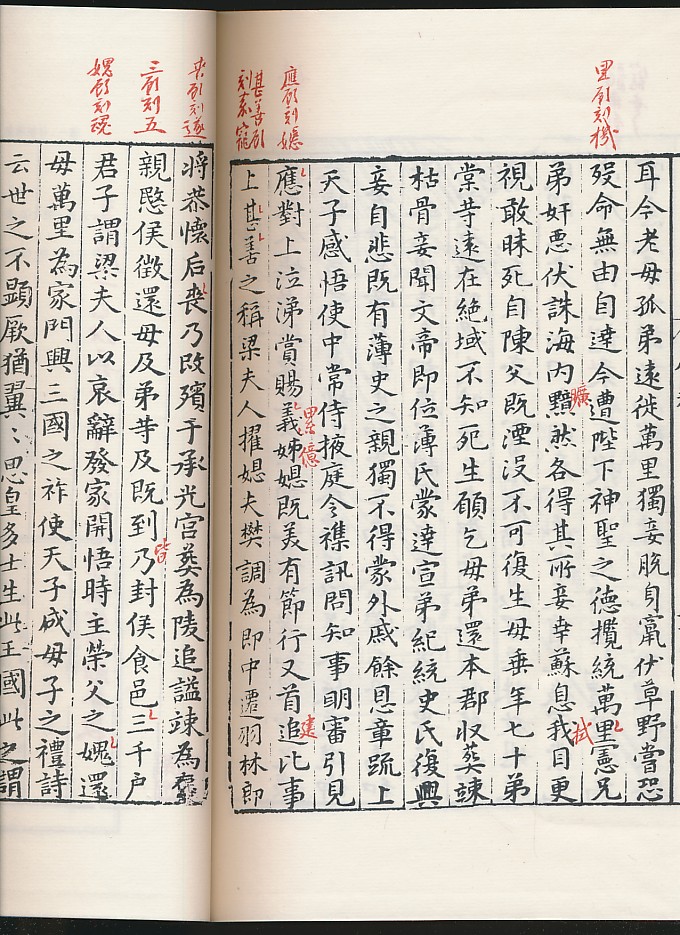 里顧刻機
應顧刻媳
甚善顧
刻嘉寵
耳今老母孤弟遠徙萬里獨妾脫身竄伏草野嘗恐
歿命無由自達今遭陛下神聖之德攬統萬里憲兄
弟奸惡伏誅海內黯然各得其所妾幸蘇息我目更
曠
拭
視敢昧死自陳父既湮没不可復生母垂年七十弟
棠䓁遠在絶域不知死生願乞母弟還本郡収葬竦
枯骨妾聞文帝即位薄氏蒙達宣弟紀統史氏復興
妾自悲既有薄史之親獨不得蒙外戚餘恩章䟽上
天子感悟使中常侍掖庭令襍訊問知事明審引見
累億
建
應對上泣涕賞賜義姊媳既美有節行又首追比事
上甚善之稱梁夫人擢媳夫樊調為郎中遷羽林郎
喪顧刻遂
三顧刻五
媿顧刻魂
將恭懷后喪乃改殯于承光宮葬為陵追謚竦為褒
皆
親愍侯徵還母及弟䓁及既到乃封侯食邑三千戶
君子謂梁夫人以哀辭發家開悟時主榮父之媿還
母萬里為家門興三國之祚使天子成母子之禮詩
云世之不顯厥猶翼〻思皇多士生此王國此之謂